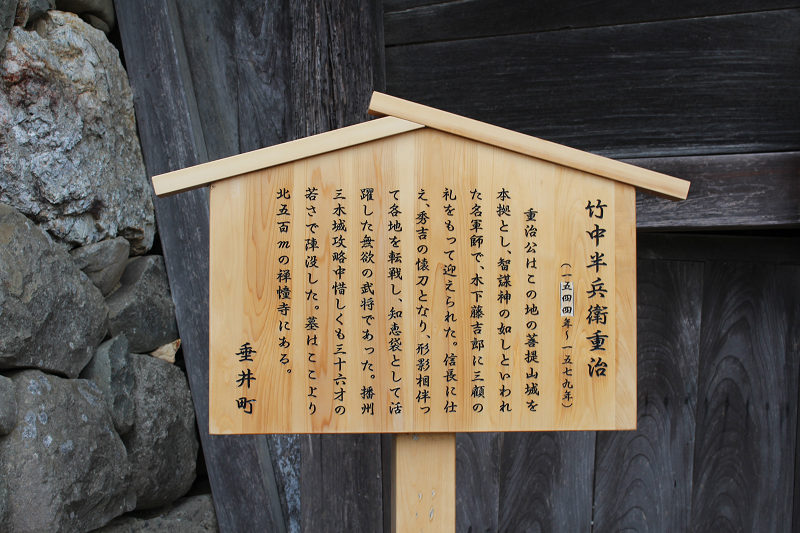 竹中半兵衛重治
(一五四四年～一五七九年)
重治公はこの地の菩提山城を
本拠とし、智謀神の如しといわれ
た名軍師で、木下藤吉郎に三顧の
礼をもって迎えられた。信長に仕
え、秀吉の懐刀となり、形影相伴っ
て各地を転戦し、知恵袋として活
躍した無欲の武将であった。播州
三木城攻略中惜しくも三十六才の
若さで陣没した。墓はここより
北五百mの禅幢寺にある。
垂井町